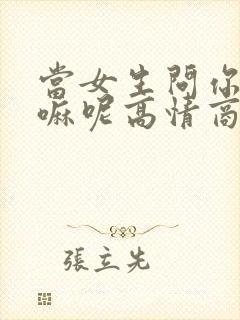 當女生問你
嘛呢高情商
張立先